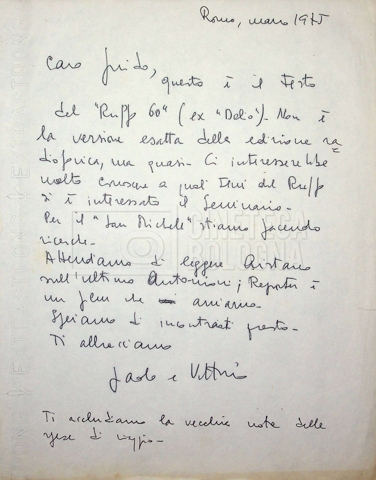 Roma, marzo 1975
Caro Guido,
questo è il testo
del "Ruffo 60" (ex "Delo"). Non è
la versione esatta della edizione ra
diofonica, ma quasi. Ci interesserebbe
molto conoscere a quali temi del Ruffo
si è interessato il Seminario.
Per il "San Michele" stiamo facendo
ricerche.
Attendiamo di leggere Aristarco
sull'ultimo Antonioni; Reporter è
un film che amiamo.
Speriamo di incontrarti presto.
Ti abbracciamo
Paolo e Vittorio
Ti accludiamo la vecchia nota delle
spese di viaggio.
CINETECA
BOLOGNA